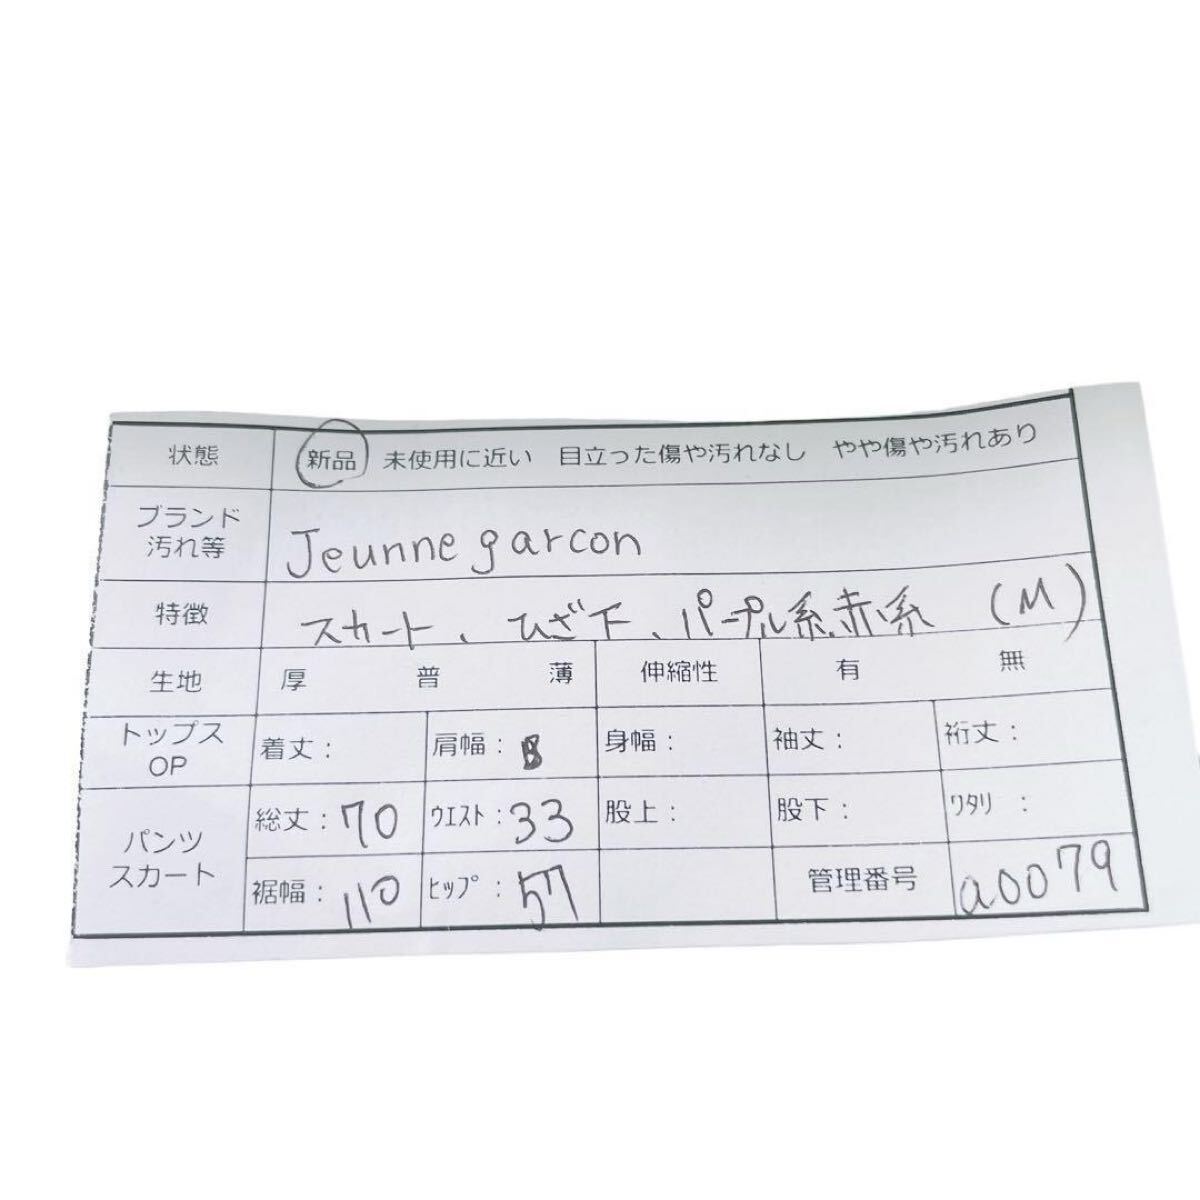 状態 新品 未使用に近い 目立った傷や汚れなし やや傷や汚れあり
ブランド
汚れ等
Jeunne garcon
特徴 スカート、ひざ下、パープル系、赤系 (M)
生地 厚 普 薄 伸縮性 有 無
トップス
OP
着丈： 肩幅： 身幅： 袖丈： 裄丈：
パンツ
スカート
総丈：70 ｳｴｽﾄ：33 股上： 股下： ﾜﾀﾘ：
裾幅：110 ﾋｯﾌﾟ：57 管理番号 a0079